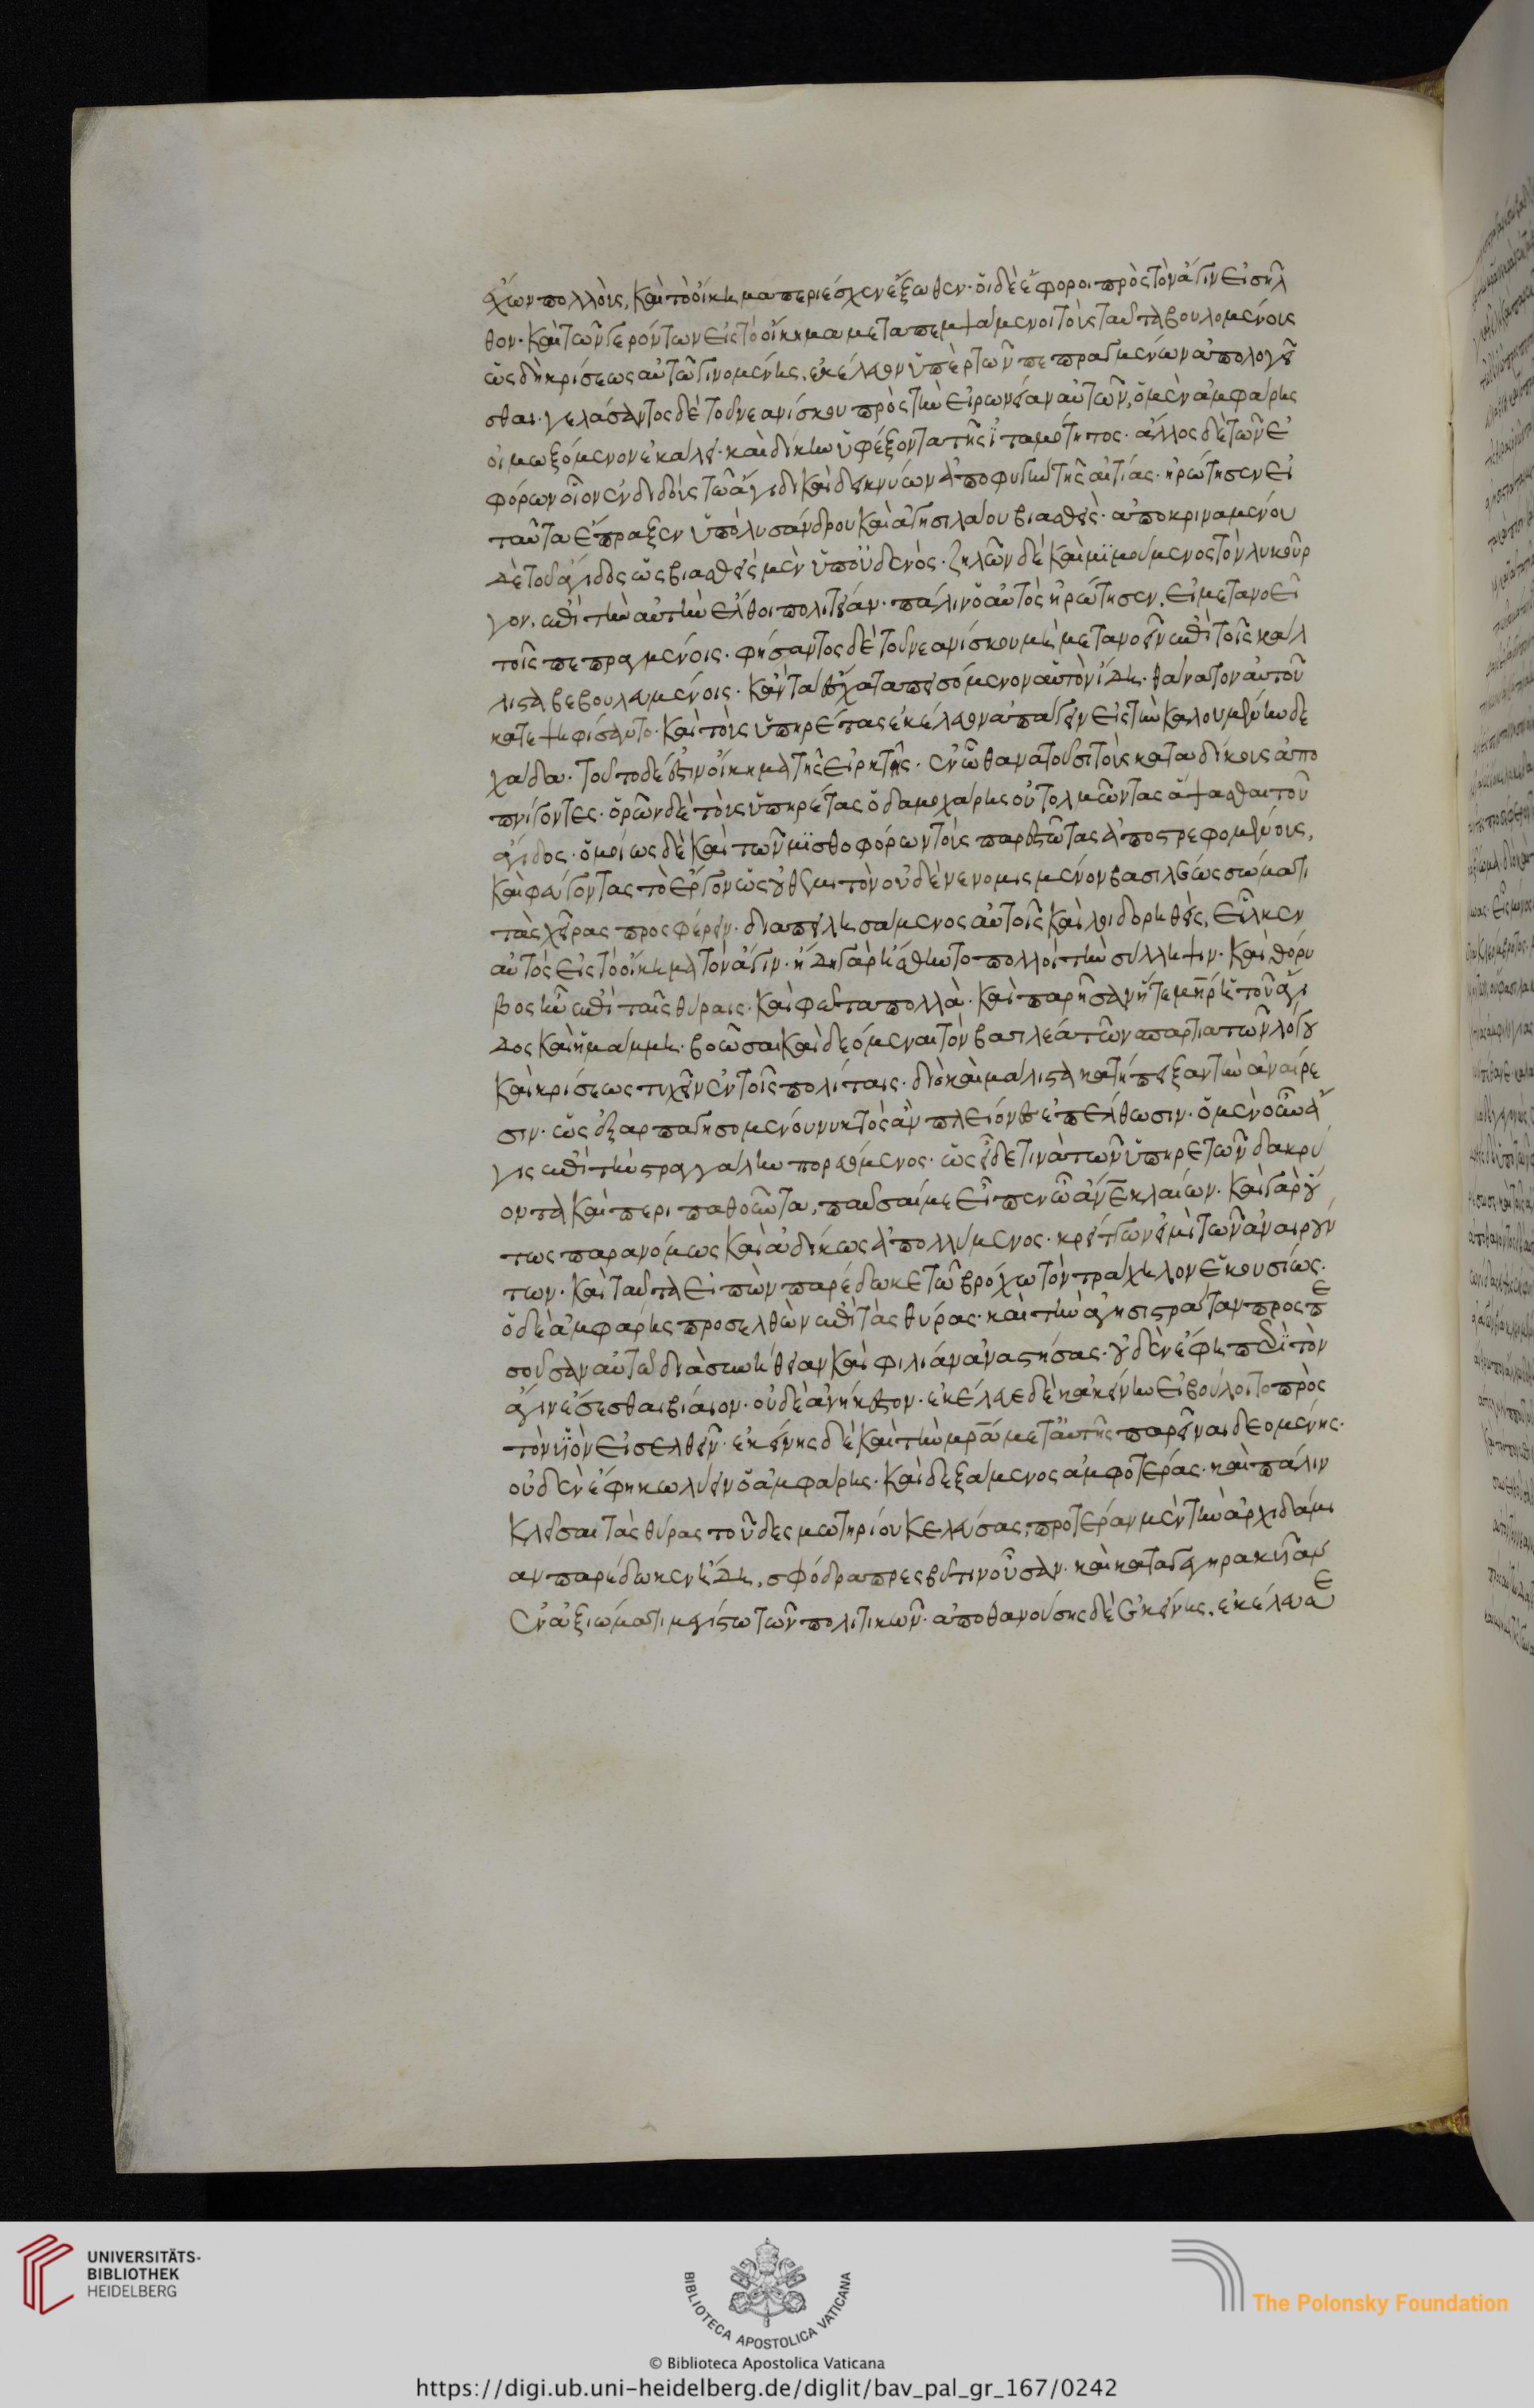 ἄγων πολλοὺς, καὶ τὸ οἴκημα περιέσχεν ἔξωθεν· οἱ δὲ ἔφοροι πρὸς τὸν ἆγιν εἰσῆλ
θον· καὶ τῶν γερόντων εἰς τὸ οἴκημα μεταπεμψάμενοι τοὺς ταυτὰ βουλομένους
ὡς δὴ κρίσεως αὐτῶ γινομένης, ἐκέλευον ὑπὲρ τῶν πεπραγμένων ἀπολογεῖ
σθαι· γελάσαντος δὲ τοῦ νεανίσκου πρὸς τὴν εἰρωνείαν αὐτῶν, ὁ μὲν ἀμφάρης
οἰμωξόμενον ἐκάλει· καὶ δίκην ὑφέξοντα τῆς ἰταμότητος· ἄλλος δὲ τῶν ἐ
φόρων οἷον ἐνδιδοὺς τῶ ἄγιδι καὶ δεικνύων ἀποφυγὴν τῆς αἰτίας· ἠρώτησεν εἰ
ταῦτα ἔπραξεν ὑπὸ λυσάνδρου καὶ ἀγησιλάου βιασθείς· ἀποκριναμένου
δὲ τοῦ ἄγιδος ὡς βιασθεὶς μὲν ὑπ' οὐδενὸς· ζηλῶν δὲ καὶ μιμούμενος τὸν λυκοῦρ
γον, ἐπὶ τὴν αὐτὴν ἔλθοι πολιτείαν· πάλιν ὁ αὐτὸς ἠρώτησεν, εἰ μετανοεῖ
τοῖς πεπραγμένοις· φήσαντος δὲ τοῦ νεανίσκου μὴ μετανοεῖν ἐπὶ τοῖς κάλ
λιστα βεβουλευμένοις· κἂν τὰ ἔσχατα πεισόμενον αὑτὸν ἴδη· θάνατον αὐτοῦ
κατεψηφίσαντο· καὶ τοὺς ὑπηρέτας ἐκέλευον ἀπάγειν εἰς τὴν καλουμένην δε
χάδα· τοῦτο δέ ἐστιν οἴκημα τῆς εἱρκτῆς· ἐν ὧ θανατοῦσι τοὺς καταδίκους ἀπο
πνίγοντες· ὁρῶν δὲ τοὺς ὑπηρέτας ὁ δαμοχάρης οὐ τολμῶντας ἅψασθαι τοῦ
ἄγιδος· ὁμοίως δὲ καὶ τῶν μισθοφόρων τοὺς παρεστῶτας ἀποστρεφομένους,
καὶ φεύγοντας τὸ ἔργον ὡς οὐ θεμιτὸν οὐδὲ νενομισμένον βασιλέως σώματι
τὰς χεῖρας προσφέρειν· διαπειλησάμενος αὐτοῖς καὶ λοιδορηθεὶς, εἷλκεν
αὐτὸς εἰς τὸ οἴκημα τὸν ἆγιν· ἤδη γὰρ ἤσθηντο πολλοὶ τὴν σύλληψιν· καὶ θόρυ
βος ἦν ἐπὶ ταῖς θύραις· καὶ φῶτα πολλὰ· καὶ παρῆσαν ἥ τε μήτηρ τοῦ ἄγι
δος καὶ ἡ μάμμη· βοῶσαι καὶ δεόμεναι τὸν βασιλέα τῶν σπαρτιατῶν λόγου
καὶ κρίσεως τυχεῖν ἐν τοῖς πολίταις· διὸ καὶ μάλιστα κατήπειξαν τὴν ἀναίρε
σιν· ὡς ἐξαρπαγησομένου νυκτὸς ἂν πλείονες ἐπέλθωσιν· ὁ μὲν οὖν ἆ
γις ἐπὶ τὴν στραγγάλην πορευόμενος· ὡς εἶδέ τινα τῶν ὑπηρετῶν δακρύ
οντα καὶ περιπαθοῦντα, παῦσαί με εἶπεν ὦ ἄνθρωπε κλαίων· καὶ γὰρ οὕ
τως παρανόμως καὶ ἀδίκως ἀπολλύμενος· κρείττων εἰμὶ τῶν ἀναιρούν
των· καὶ ταῦτα εἰπὼν παρέδωκε τῶ βρόχω τὸν τράχηλον ἑκουσίως·
ὁ δὲ ἀμφάρης προσελθὼν ἐπὶ τὰς θύρας· καὶ τὴν ἀγησιστράταν προσπε
σοῦσαν αὐτῶ διὰ συνήθειαν καὶ φιλίαν ἀναστήσας· οὐδὲν ἔφη περὶ τὸν
ἆγιν ἔσεσθαι βίαιον· οὐδὲ ἀνήκεστον· ἐκέλευε δὲ κἀκείνην εἰ βούλοιτο πρὸς
τὸν υἱὸν εἰσελθεῖν· ἐκείνης δὲ καὶ τὴν μητέρα μετ' αὐτῆς παρεῖναι δεομένης·
οὐδὲν ἔφη κωλύειν ὁ ἀμφάρης· καὶ δεξάμενος ἀμφοτέρας· καὶ πάλιν
κλεῖσαι τὰς θύρας τοῦ δεσμωτηρίου κελεύσας, προτέραν μὲν τὴν ἀρχιδάμι
αν παρέδωκεν ἤδη, σφόδρα πρεσβῦτιν οὖσαν· καὶ καταγεγηρακυῖαν
ἐν ἀξιώματι μεγίστω τῶν πολιτικῶν· ἀποθανούσης δὲ ἐκείνης, ἐκέλευε
UNIVERSITÄTS-
BIBLIOTHEK
HEIDELBERG
BIBLIOTECA APOSTOLICA VATICANA
The Polonsky Foundation
© Biblioteca Apostolica Vaticana
https://digi.ub.uni-heidelberg.de/diglit/bav_pal_gr_167/0242